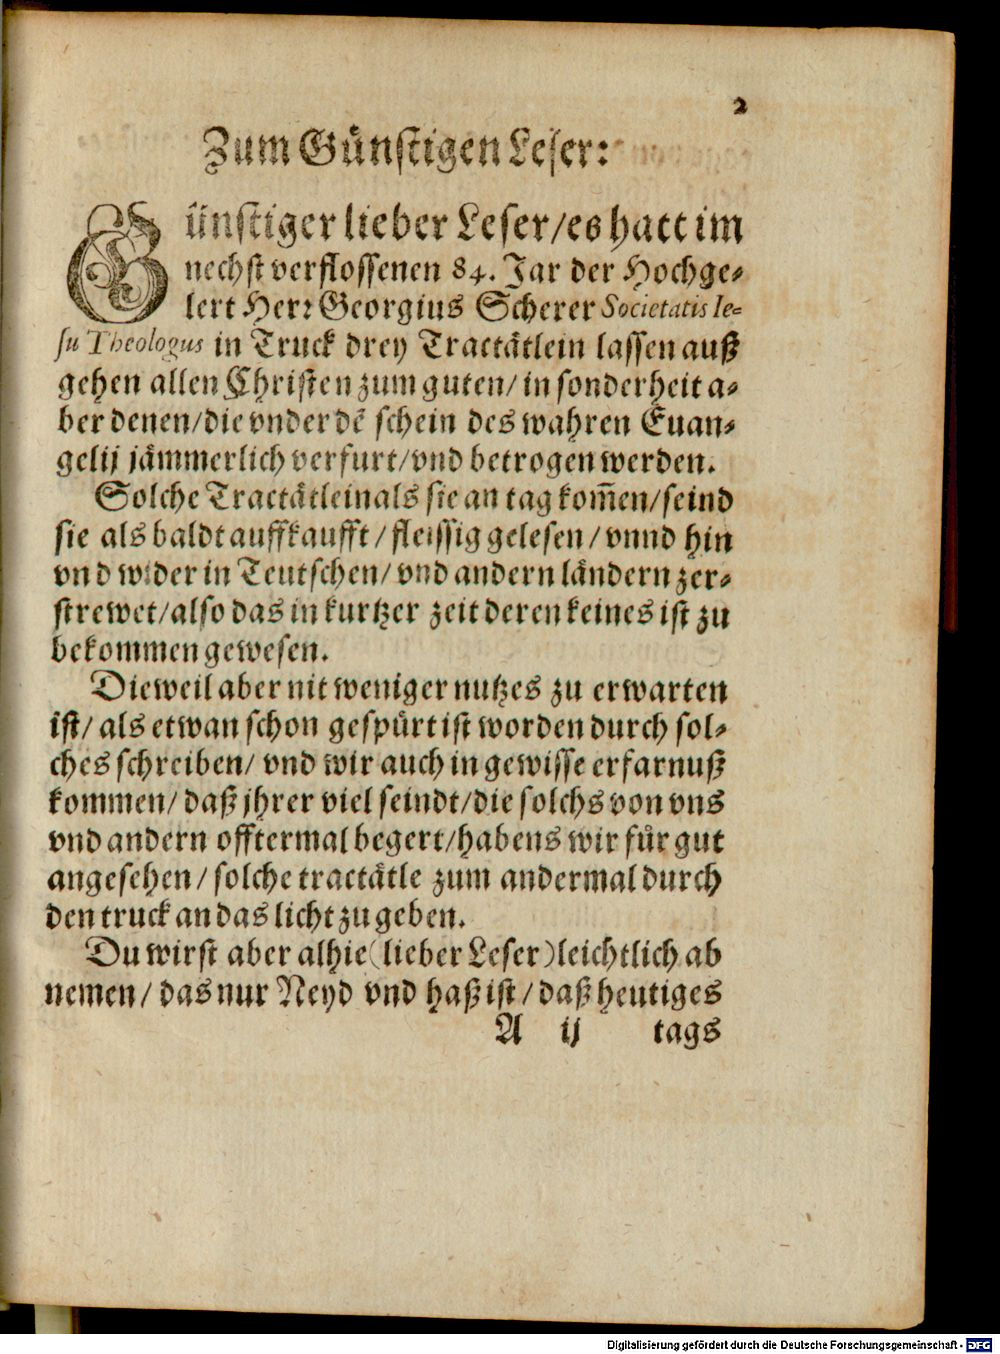 2
Zum Günstigen Leser:
Günstiger lieber Leser/es hatt im
nechst verflossenen 84. Jar der Hochge-
lert Herr Georgius Scherer Societatis Ie-
su Theologus in Truck drey Tractätlein lassen auß
gehen allen Christen zum guten/ in sonderheit a-
ber denen/die vnder dē schein des wahren Euan-
gelij jämmerlich verfurt/vnd betrogen werden.
Solche Tractätlein als sie an tag kom̄en/seind
sie als baldt auffkaufft/ fleissig gelesen/ vnnd hin
vnd wider in Teutschen/ vnd andern ländern zer-
strewet/also das in kurtzer zeit deren keines ist zu
bekommen gewesen.
Dieweil aber nit weniger nutzes zu erwarten
ist/ als etwan schon gespürt ist worden durch sol-
ches schreiben/ vnd wir auch in gewisse erfarnuß
kommen/ daß jhrer viel seindt/die solchs von vns
vnd andern offtermal begert/habens wir für gut
angesehen/ solche tractätle zum andermal durch
den truck an das licht zu geben.
Du wirst aber alhie (lieber Leser) leichtlich ab
nemen/ das nur Neyd vnd haß ist/ daß heutiges
A ij tags
Digitalisierung gefördert durch die Deutsche Forschungsgemeinschaft - DFG